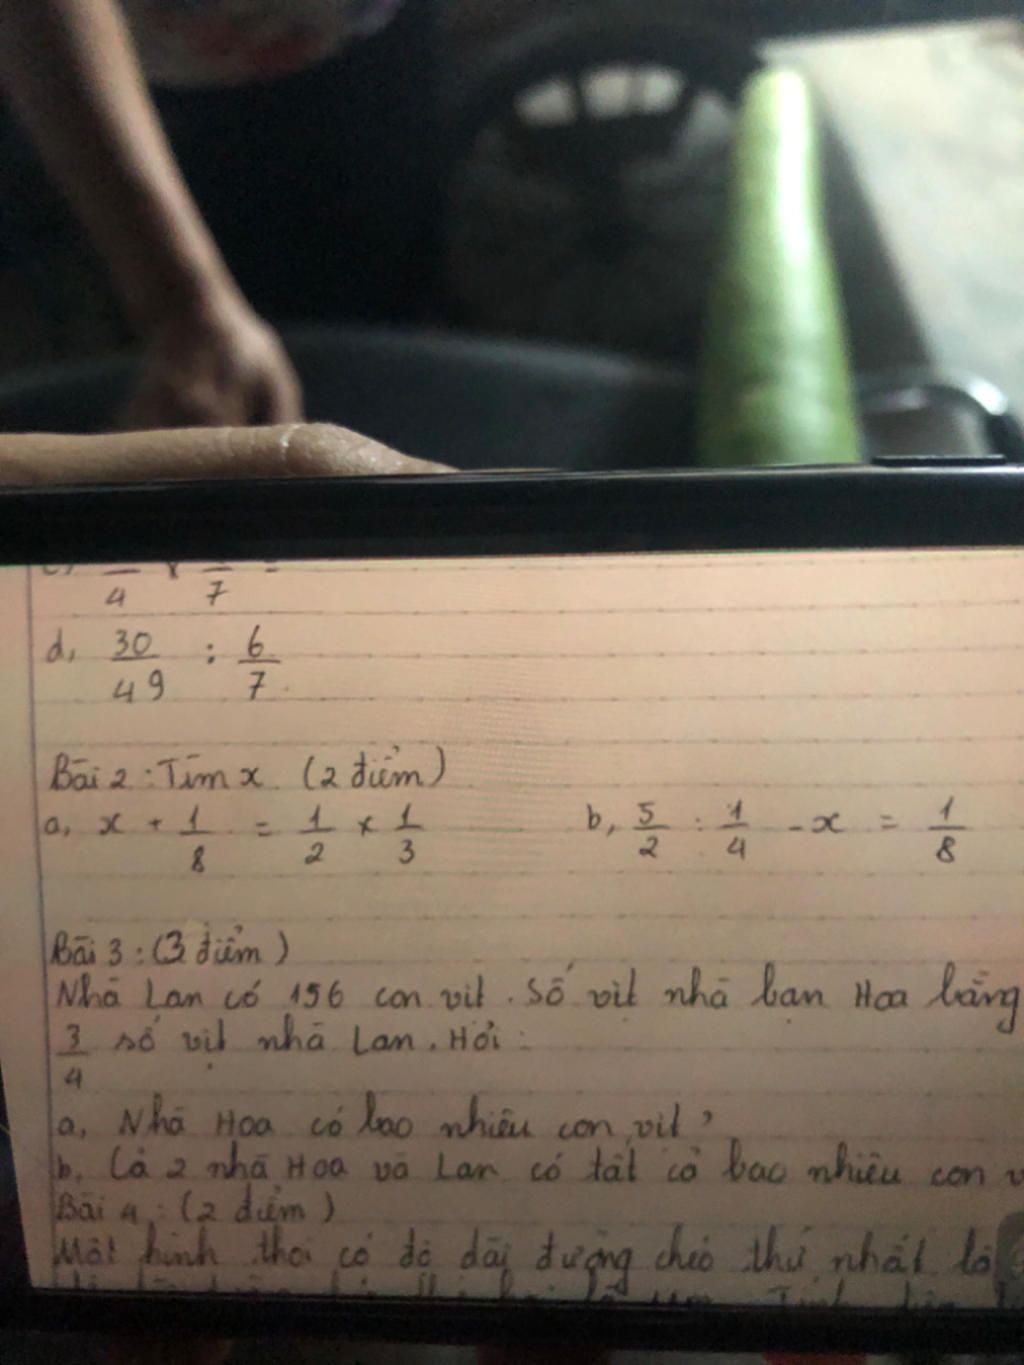 4 7
d, 30/49 : 6/7
Bài 2: Tìm x (2 điểm)
a, x + 1/8 = 1/2 x 1/3 b, 5/2 : 1/4 - x = 1/8
Bài 3: (3 điểm)
Nhà Lan có 156 con vịt. Số vịt nhà bạn Hoa bằng
3/4 số vịt nhà Lan. Hỏi:
a, Nhà Hoa có bao nhiêu con vịt?
b, Cả 2 nhà Hoa và Lan có tất cả bao nhiêu con v
Bài 4: (2 điểm)
Một hình thoi có độ dài đường chéo thứ nhất là